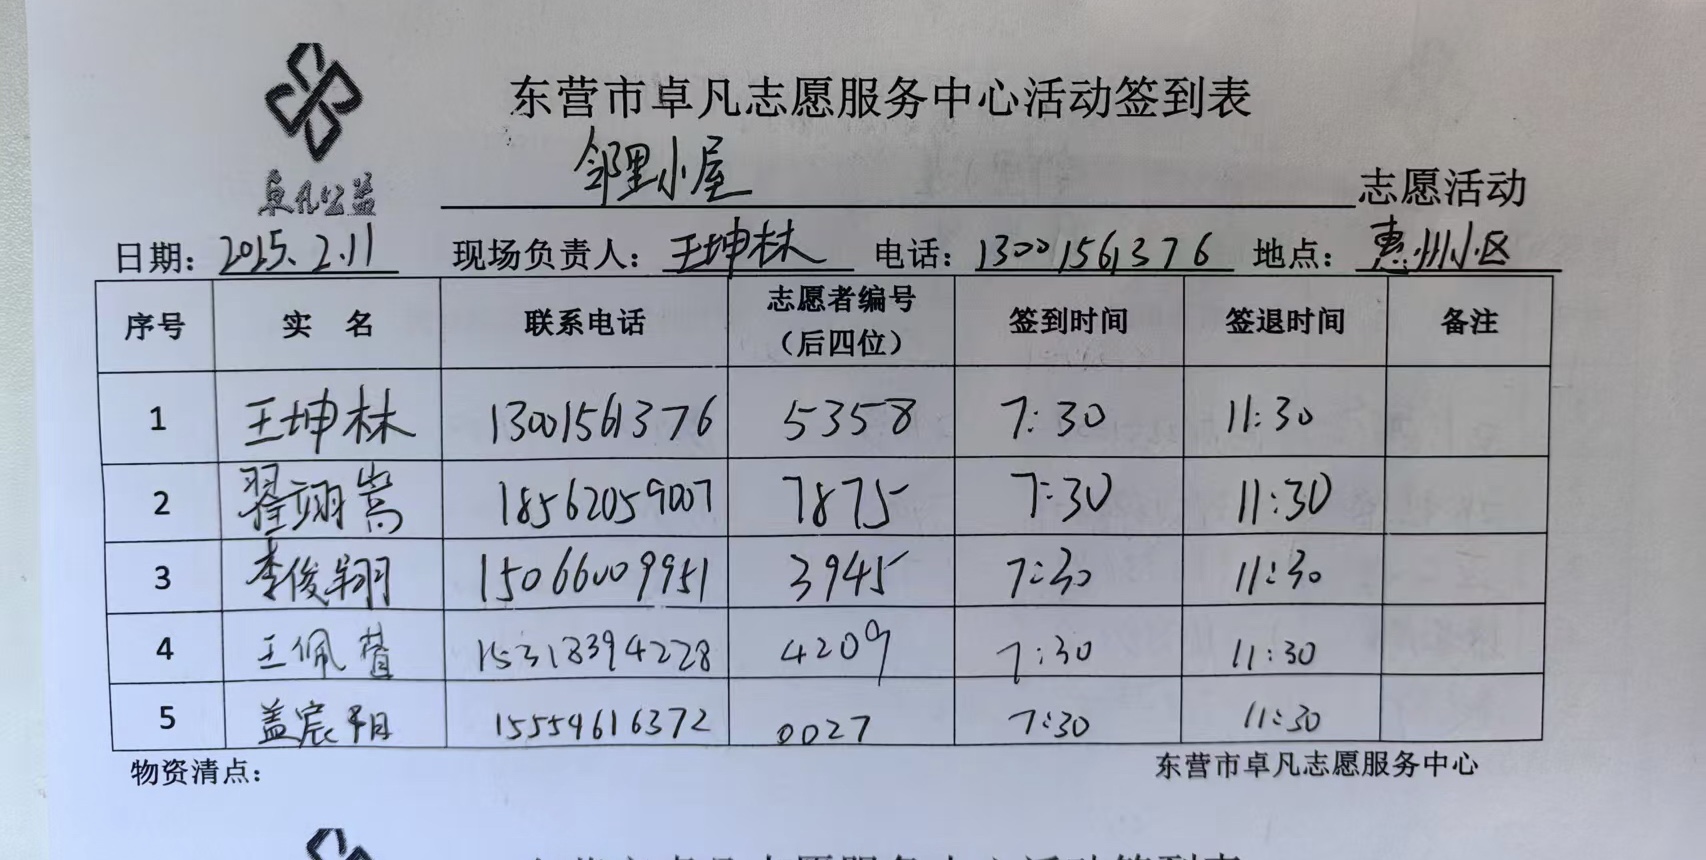 东营市卓凡志愿服务中心活动签到表
卓凡公益
邻里小屋 志愿活动
日期：2025.2.11 现场负责人：王坤林 电话：13001561376 地点：惠州小区
序号 实 名 联系电话 志愿者编号（后四位） 签到时间 签退时间 备注
1 王坤林 13001561376 5358 7:30 11:30
2 翟翊嵩 18562059007 7875 7:30 11:30
3 李俊翔 15066009951 3945 7:30 11:30
4 王佩萱 15318394228 4209 7:30 11:30
5 盖宸阳 15554616372 0027 7:30 11:30
物资清点： 东营市卓凡志愿服务中心